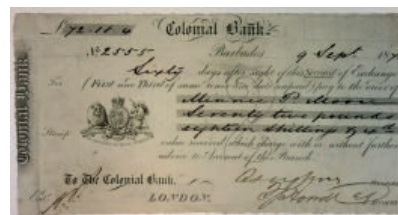 £72.18.4 Colonial Bank.
№ 2555 Barbados 9 Sept. 187
Sixty days after sight of this Second of Exchange
For (First and Third of same tenor and date unpaid) pay to the order of
Minnie P. Moore
Seventy two pounds
eighteen shillings & 4d
Stamp
value received, which charge with or without further
advice to Account of this Branch.
To The Colonial Bank.
LONDON.
Colonial Bank